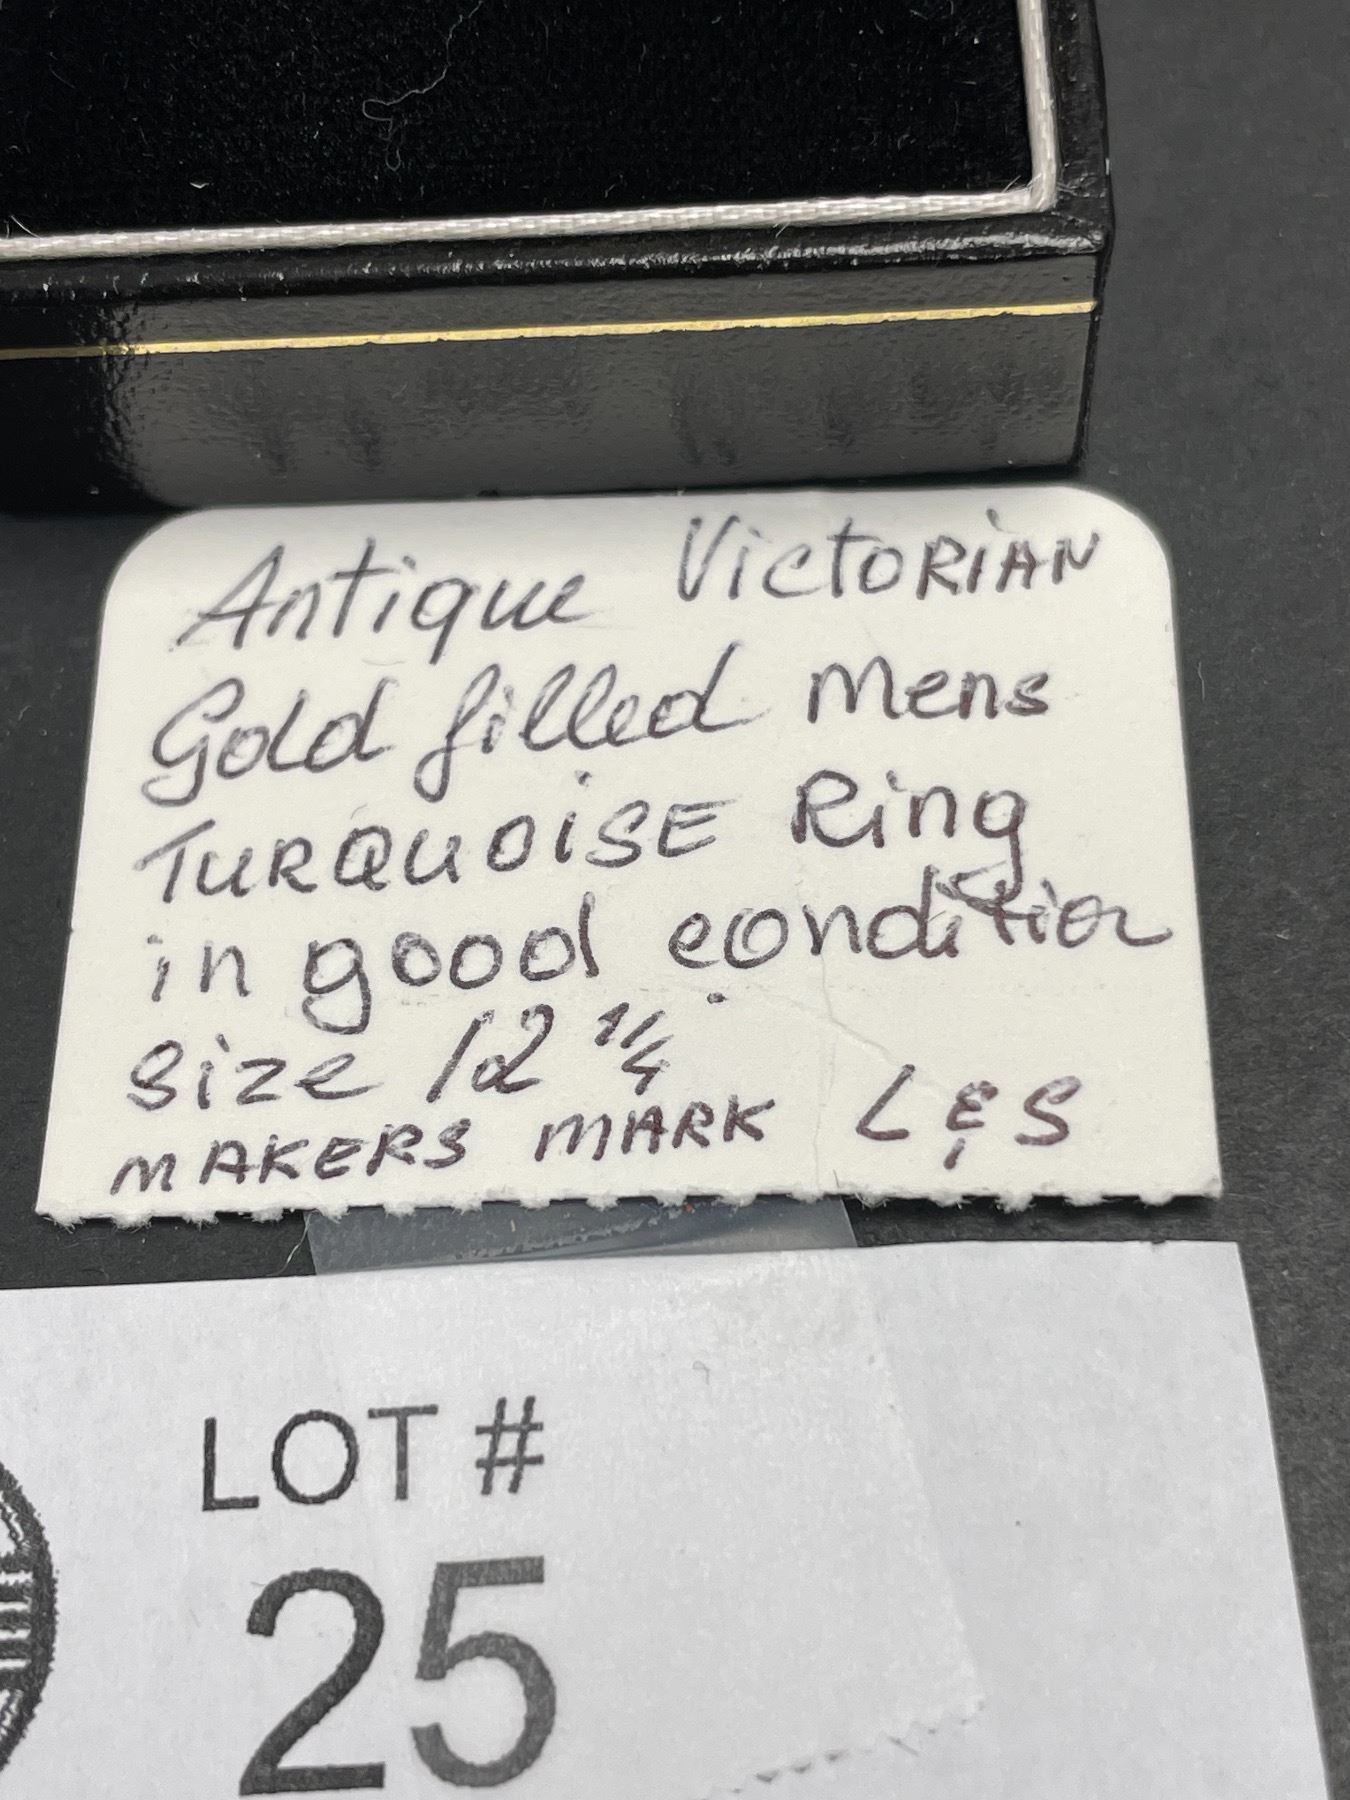 Antique VICTORIAN
Gold filled Mens
TURQUOISE Ring
in good condition
size 12 1/4
MAKERS MARK L & S
LOT #
25